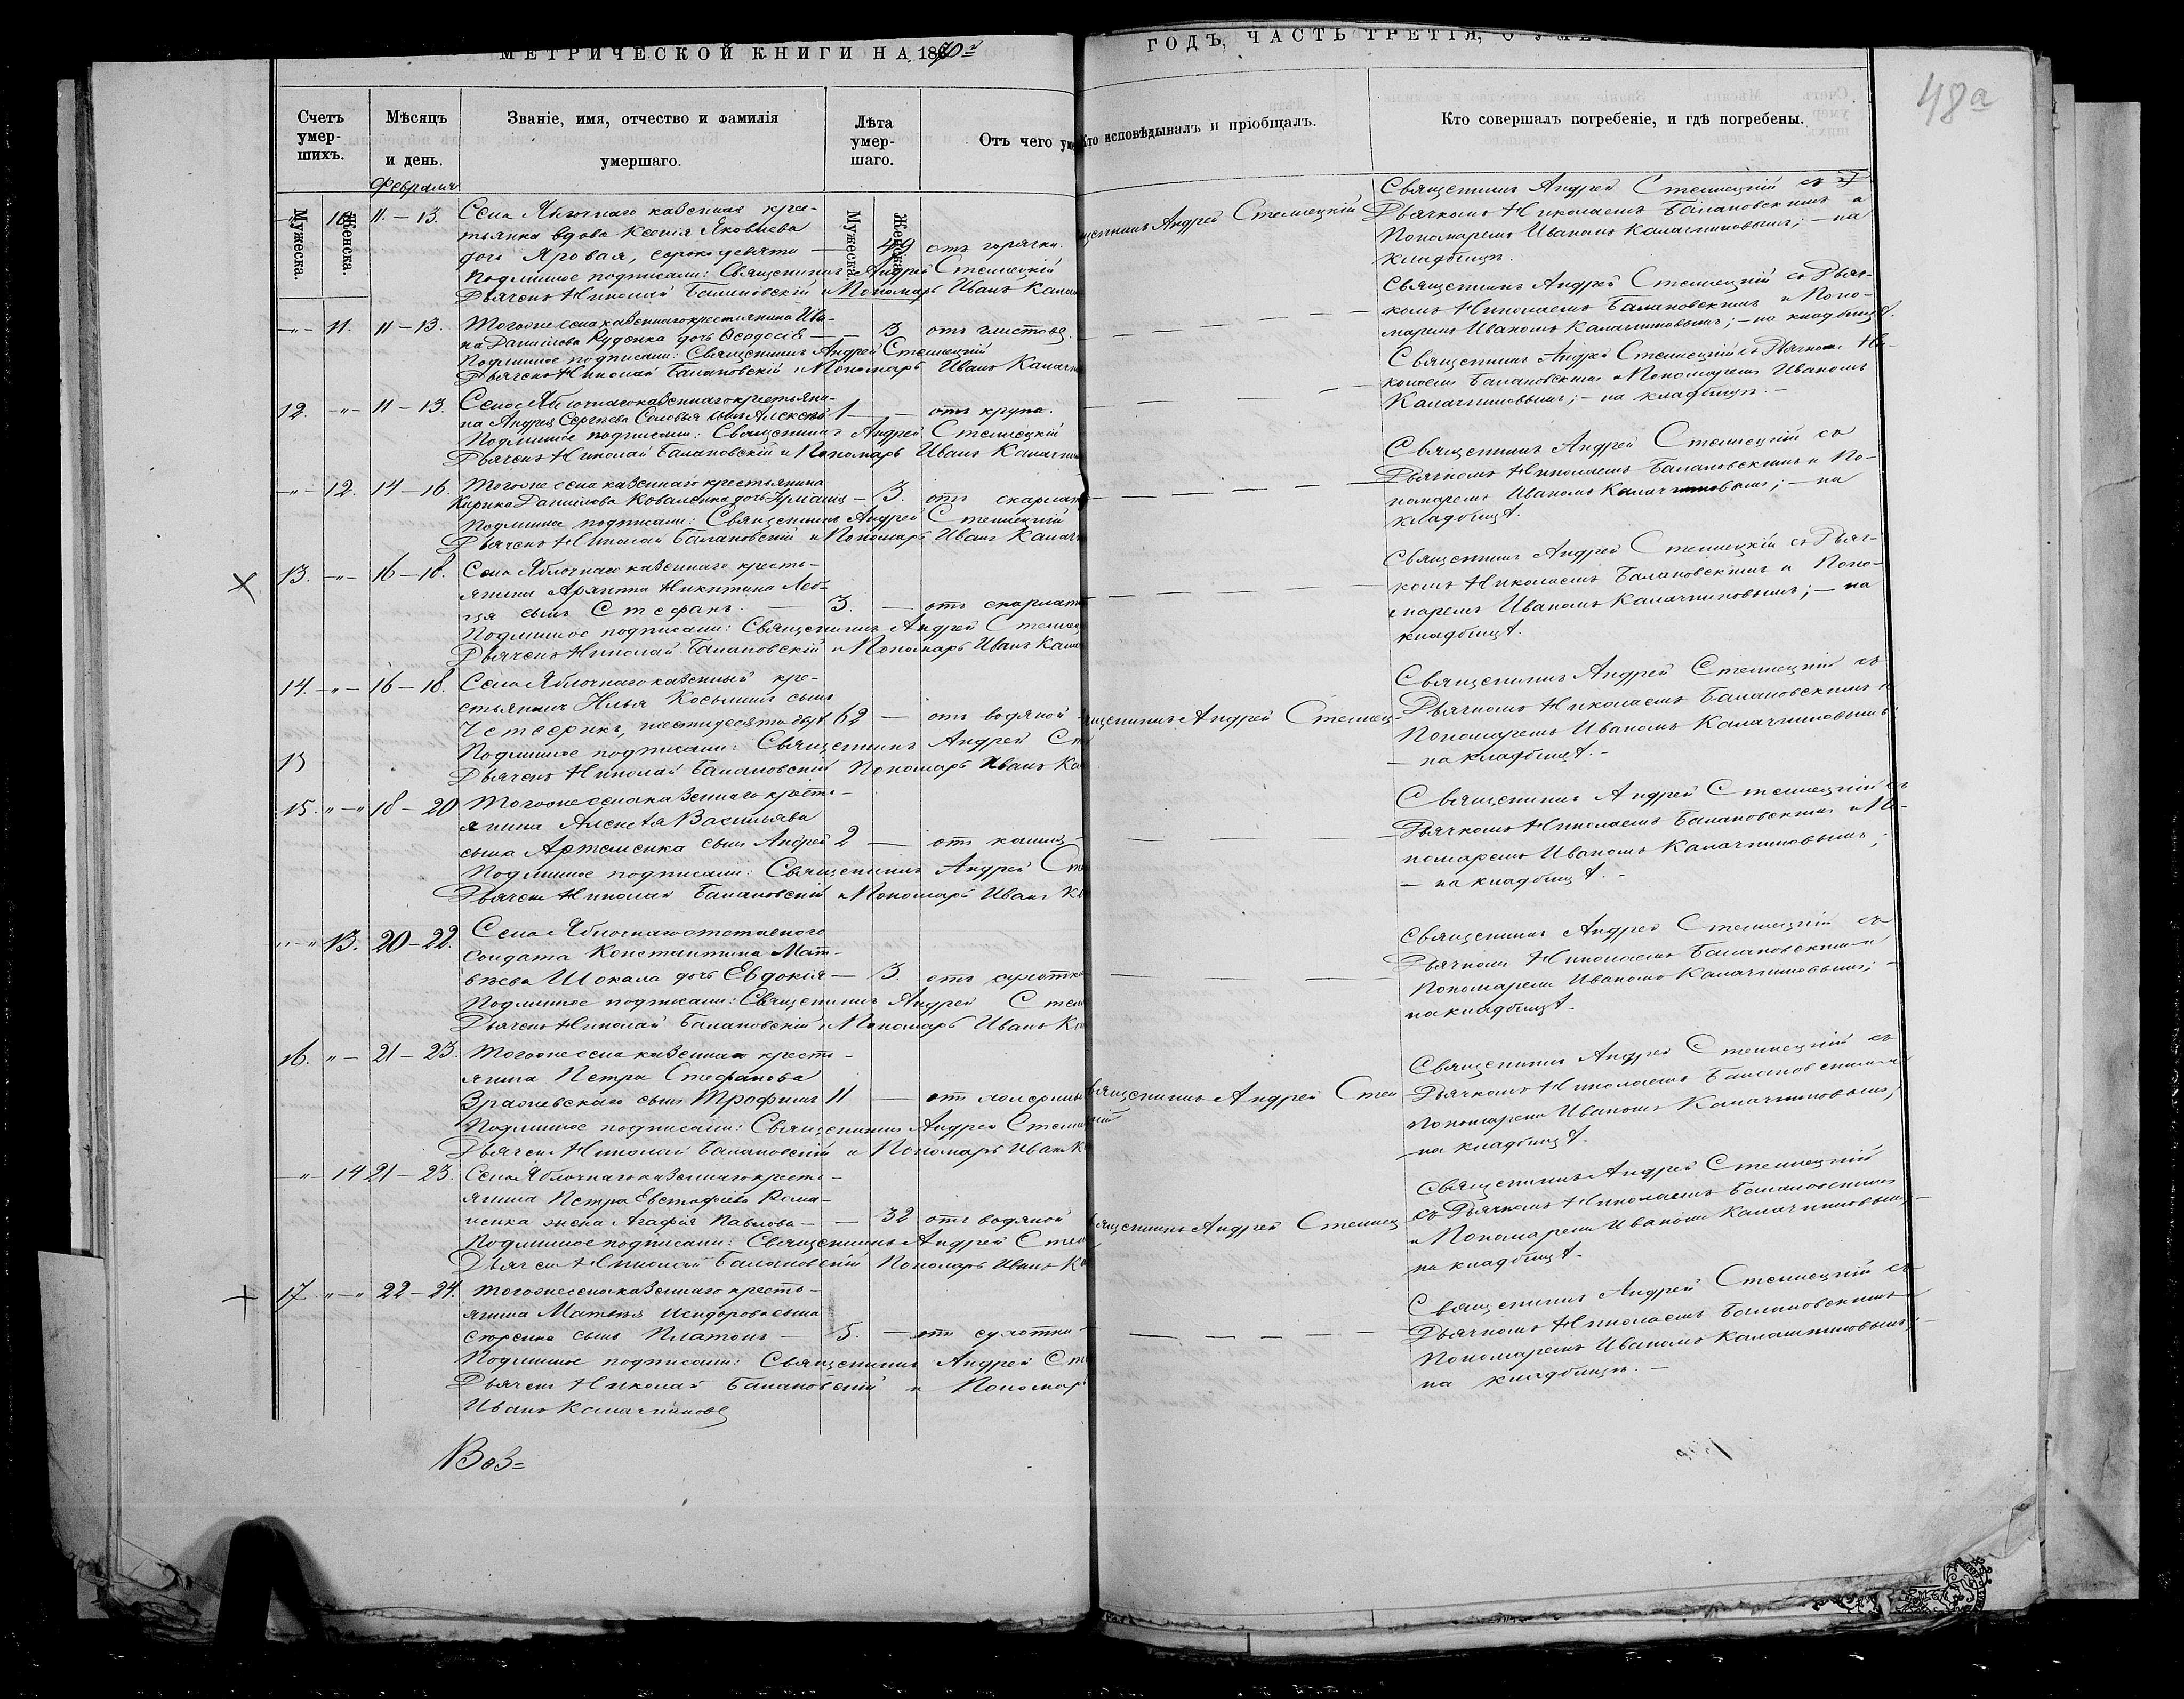 МЕТРИЧЕСКОЙ КНИГИ НА 1870 г
ГОДЪ, ЧАСТЬ ТРЕТІЯ, О УМЕ
48а
Счетъ умер-шихъ.
Мужеска.
Женска.
Мѣсяцъ и день.
Званіе, имя, отчество и фамилія умершаго.
Лѣта умер-шаго.
Мужеска.
Женска.
Отъ чего уме
Кто исповѣдывалъ и пріобщалъ.
Кто совершалъ погребеніе, и гдѣ погребены.
Февраля
-"- 10. 11. – 13. Села Яблочнаго казенная кре-
стьянка вдова Ксенія Яковлева
дочь Яровая, сорокъ девяти — 49 отъ горячки.
Подлинное подписали: Священникъ Андрей Стеллецкій
Дьячекъ Николай Балановскій и Пономарь Иванъ Калач
щенникъ Андрей Стеллецкій
Священникъ Андрей Стеллецкій съ
Дьячкомъ Николаемъ Балановскимъ и
Пономаремъ Иваномъ Калачниковымъ; – на
кладбищѣ.
-"- 11. 11 – 13. Тогоже села казеннаго крестьянина Ива-
на Данилова Руденка дочь Ѳеодосія — 3 отъ глистовъ.
Подлинное подписали: Священникъ Андрей Стеллецкій
Дьячекъ Николай Балановскій и Пономарь Иванъ Калачни
Священникъ Андрей Стеллецкій съ Дьяч-
комъ Николаемъ Балановскимъ и Поно-
маремъ Иваномъ Калачниковымъ; – на кладбищѣ.
12. -"- 11 – 13. Села Яблочнаго казеннаго крестьяни-
на Андрея Сергѣева Соловья сынъ Алексѣй 1 — отъ крупа.
Подлинное подписали: Священникъ Андрей Стеллецкій
Дьячекъ Николай Балановскій и Пономарь Иванъ Калачни
Священникъ Андрей Стеллецкій съ Дьячкомъ Ни-
колаемъ Балановскимъ и Пономаремъ Иваномъ
Калачниковымъ; – на кладбищѣ. –
-"- 12. 14 – 16. Тогоже села казеннаго крестьянина
Кирика Данилова Коваленка дочь — 3. отъ скарлат
Подлинное подписали: Священникъ Андрей Стеллецкій
Дьячекъ Николай Балановскій и Пономарь Иванъ Калачн
Священникъ Андрей Стеллецкій съ
Дьячкомъ Николаемъ Балановскимъ и По-
номаремъ Иваномъ Калачниковымъ; – на
кладбищѣ.
13. -"- 16 – 18. Села Яблочнаго казеннаго кресть-
янина Никитина
сынъ Стефанъ. — 3. — отъ скарлати
Подлинное подписали: Священникъ Андрей Стеллец
Дьячекъ Николай Балановскій и Пономарь Иванъ Кала
Священникъ Андрей Стеллецкій съ Дьяч-
комъ Николаемъ Балановскимъ и Поно-
маремъ Иваномъ Калачниковымъ; – на
кладбищѣ.
14. -"- 16 – 18. Села Яблочнаго казенный кре-
стьянинъ Илья Косьминъ сынъ
Четверикъ, шестидесяти двухъ 62 — отъ водяной
Подлинное подписали: Священникъ Андрей Сте
Дьячекъ Николай Балановскій Пономарь Иванъ Ка
щенникъ Андрей Стеллец
Священникъ Андрей Стеллецкій съ
Дьячкомъ Николаемъ Балановскимъ и
Пономаремъ Иваномъ Калачниковымъ
– на кладбищѣ. –
15
15. "-" 18 – 20 Тогоже села казеннаго кресть-
янина Алексѣя Васильева
сына Артеменка сынъ Андрей 2 — от кашля
Подлинное подписали: Священникъ Андрей Сте
Дьячекъ Николай Балановскій и Пономарь Иванъ К
Священникъ Андрей Стеллецкій съ
Дьячкомъ Николаемъ Балановскимъ и По-
номаремъ Иваномъ Калачниковымъ;
– на кладбищѣ. –
"-" 13. 20 – 22. Села Яблочнаго отставного
солдата Константина Мат-
вѣева Шокала дочь Евдокія — 3. отъ сухотки
Подлинное подписали: Священникъ Андрей Стел
Дьячекъ Николай Балановскій и Пономарь Иванъ К
Священникъ Андрей Стеллецкій съ
Дьячкомъ Николаемъ Балановскимъ и
Пономаремъ Иваномъ Калачниковымъ; –
на кладбищѣ.
16. "- 21 – 23. Тогоже села казеннаго кресть-
янина Петра Стефанова
Зражевскаго сынъ Трофимъ 11 — от холерины
Подлинное подписали: Священникъ Андрей Стелле
Дьячекъ Николай Балановскій и Пономарь Иванъ К
Священникъ Андрей Стел
кій
Священникъ Андрей Стеллецкій съ
Дьячкомъ Николаемъ Балановскимъ и
Пономаремъ Иваномъ Калачниковымъ;
на кладбищѣ.
-"- 14 21 – 23. Села Яблочнаго казеннаго кресть-
янина Петра Евстафіева Рома-
ненка жена Агафія Павлова — 32 отъ водяной
Подлинное подписали: Священникъ Андрей Стел
Дьячекъ Николай Балановскій Пономарь Иванъ К
Священникъ Андрей Стеллец
Священникъ Андрей Стеллецкій
съ Дьячкомъ Николаемъ Балановскимъ
и Пономаремъ Иваномъ Калачниковымъ –
на кладбищѣ.
17 "-" 22 – 24. Тогоже села казеннаго кресть-
янина Матвѣя Исидорова сына
сынъ Платонъ — 5. — отъ сухотки
Подлинное подписали: Священникъ Андрей Сте
Дьячекъ Николай Балановскій и Пономарь
Иванъ Калачниковъ
Священникъ Андрей Стеллецкій съ
Дьячкомъ Николаемъ Балановскимъ
Пономаремъ Иваномъ Калашниковымъ; –
на кладбищѣ. –
Воз=